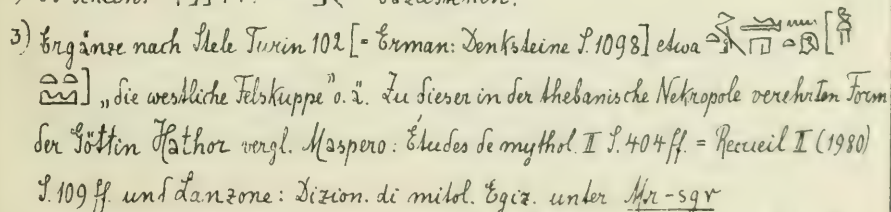 3) Ergänze nach Stele Turin 102 [= Erman: Denksteine S. 1098] etwa
] „die westliche Felskuppe" o. ä. Zu dieser in der thebanische Nekropole verehrten Form
der Göttin Hathor vergl. Maspero: Études de mythol. II S. 404 ff. = Recueil II (1980)
S. 109 ff und Lanzone: Dizion. di mitol. Egiz. unter Mr-sgr